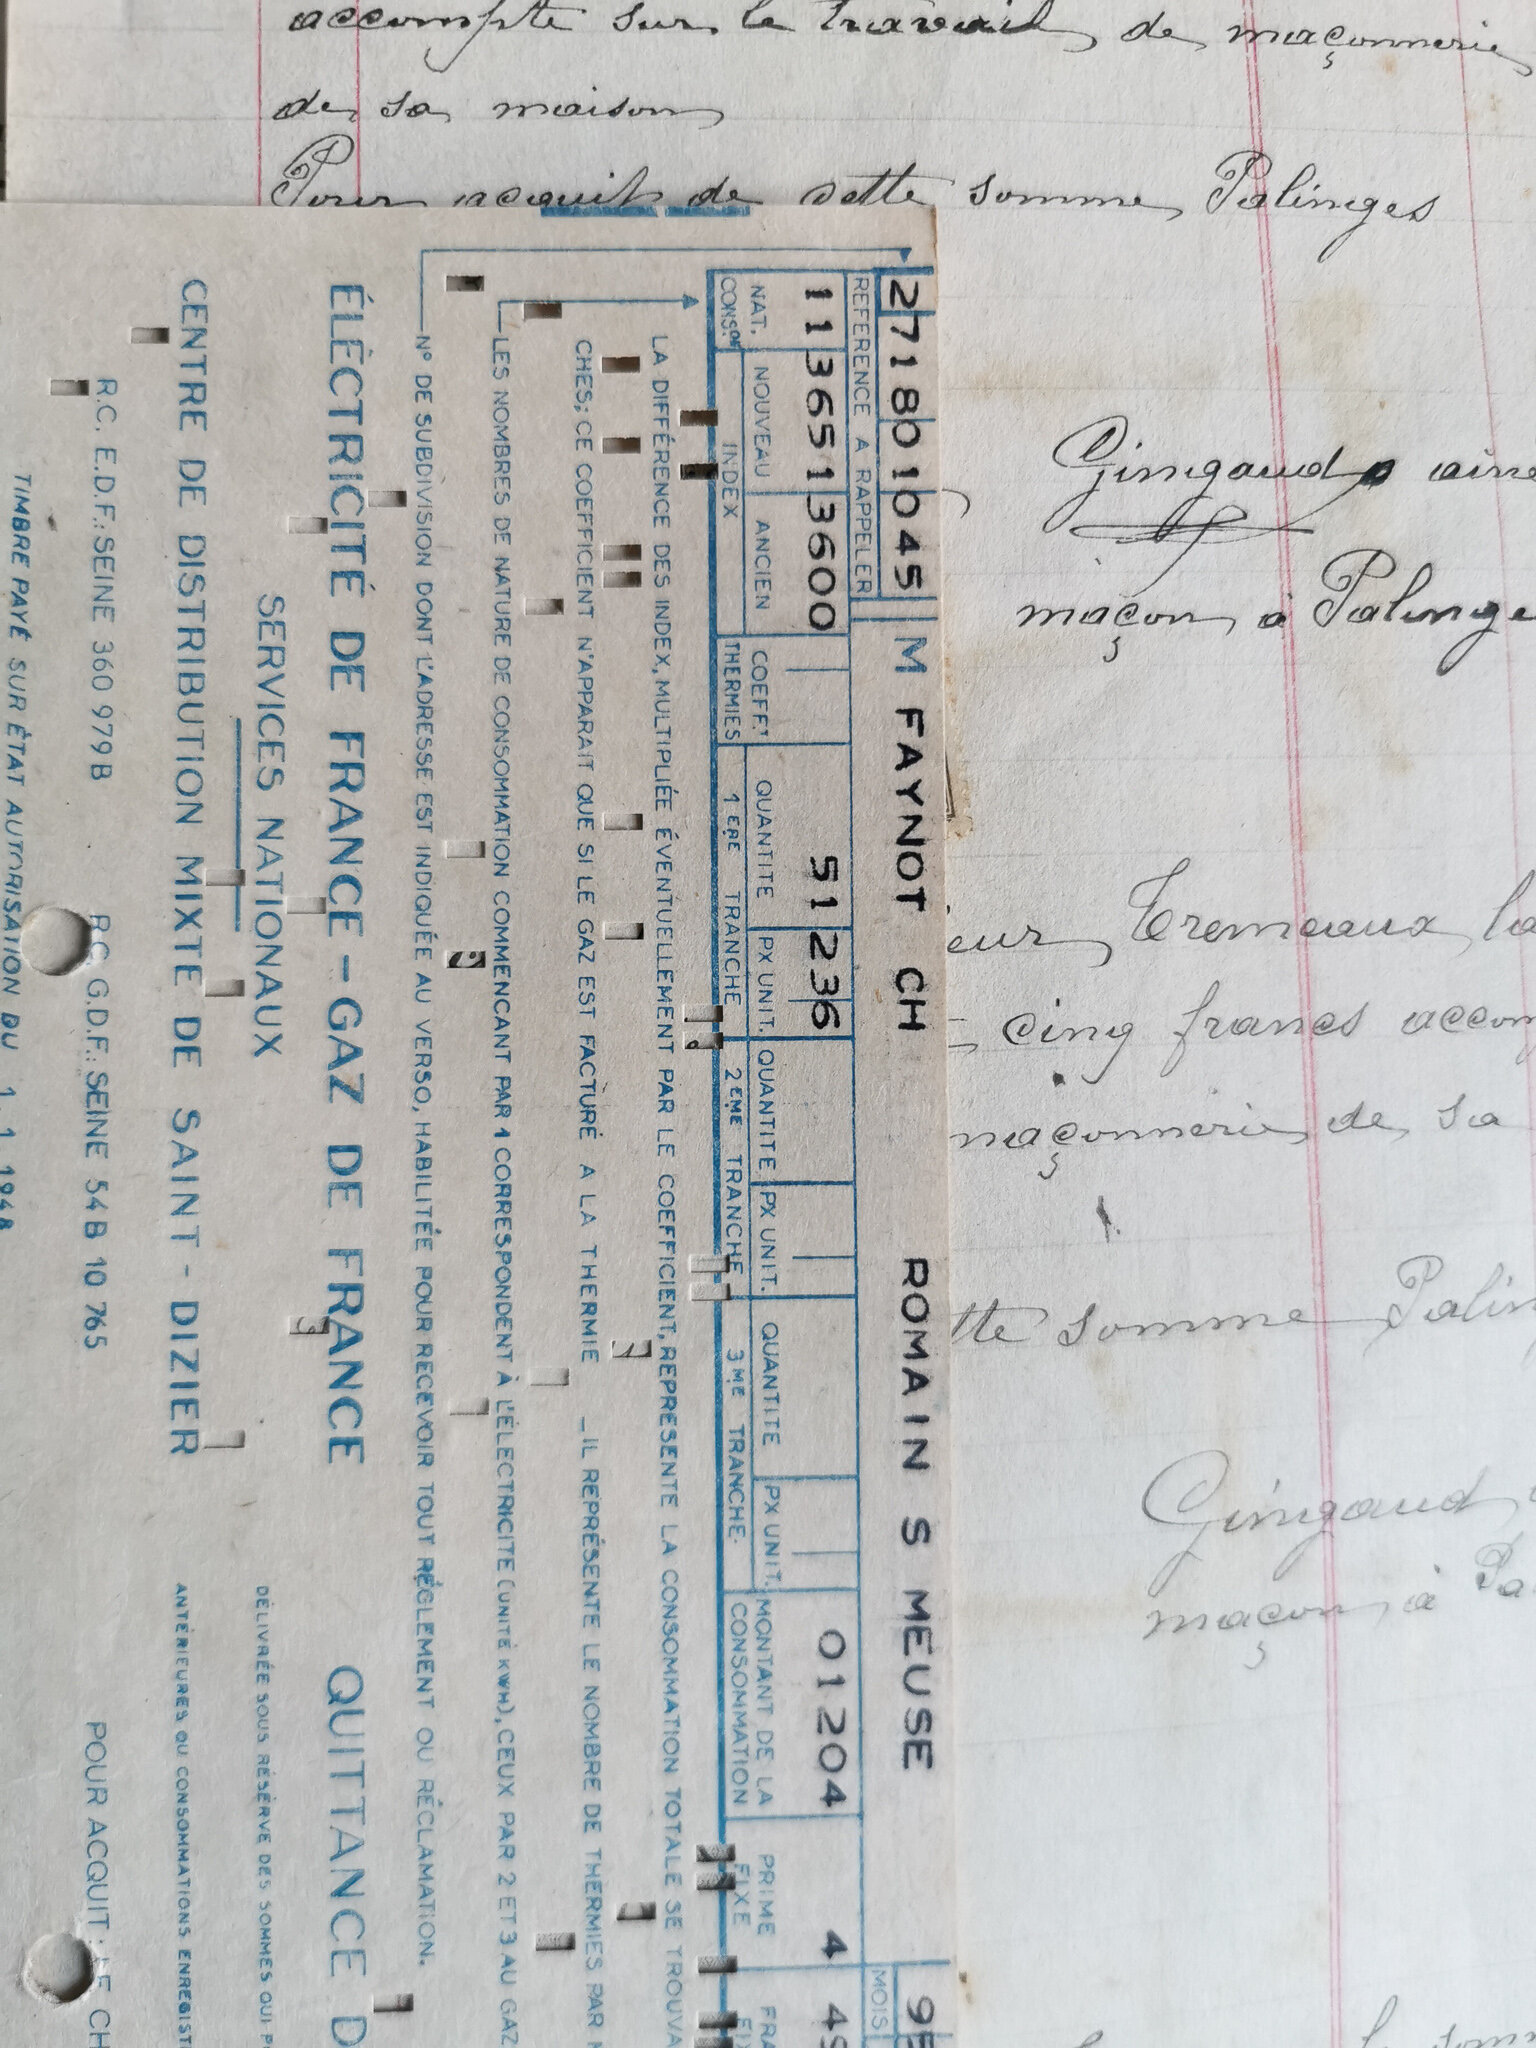 accompte sur le travail de maçonnerie
de sa maison
Pour acquit de cette somme Palinges
Gingaud aine
maçon à Palinge
eur Tremeaux la
cinq francs accom
maçonnerie de sa
tte somme Palin
Gingaud
maçon à Pa
271801045 M FAYNOT CH ROMAIN S MEUSE 95
REFERENCE A RAPPELER MOIS
11 3651 3600 51 236 01204 4 49
NAT. CONS.ON NOUVEAU ANCIEN COEFF.T QUANTITE PX UNIT. QUANTITE PX UNIT. QUANTITE PX UNIT. MONTANT DE LA PRIME FRA
INDEX THERMIES 1ERE TRANCHE 2EME TRANCHE 3ME TRANCHE. CONSOMMATION FIXE
LA DIFFÉRENCE DES INDEX, MULTIPLIÉE ÉVENTUELLEMENT PAR LE COEFFICIENT, REPRÉSENTE LA CONSOMMATION TOTALE SE TROUVA
CHES; CE COEFFICIENT N'APPARAIT QUE SI LE GAZ EST FACTURÉ A LA THERMIE _ IL REPRÉSENTE LE NOMBRE DE THERMIES PAR
LES NOMBRES DE NATURE DE CONSOMMATION COMMENCANT PAR 1 CORRESPONDENT À L'ÉLECTRICITÉ (UNITÉ KWH), CEUX PAR 2 ET 3 AU GAZ
N° DE SUBDIVISION DONT L'ADRESSE EST INDIQUÉE AU VERSO, HABILITÉE POUR RECEVOIR TOUT RÉGLEMENT OU RÉCLAMATION.
ÉLECTRICITÉ DE FRANCE - GAZ DE FRANCE QUITTANCE D
SERVICES NATIONAUX
DÉLIVRÉE SOUS RÉSERVE DES SOMMES QUI P
CENTRE DE DISTRIBUTION MIXTE DE SAINT - DIZIER
ANTÉRIEURES OU CONSOMMATIONS ENREGIST
R.C. E.D.F.: SEINE 360 979 B R.C. G.D.F.: SEINE 54 B 10 765 POUR ACQUIT: LE CH
TIMBRE PAYÉ SUR ÉTAT AUTORISATION DU 1. 1. 1948